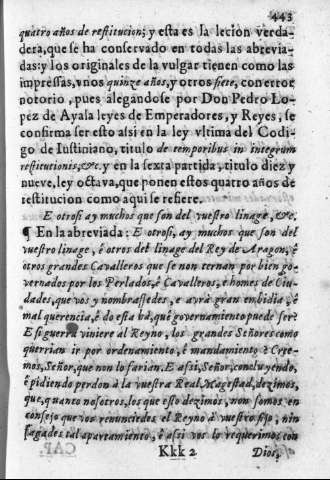 443
quatro años de restitucion; y esta es la lecion verda-
dera, que se ha conservado en todas las abrevia-
das: y los originales de la vulgar tienen como las
impressas, vnos quinze años, y otros siete, con error
notorio, pues alegandose por Don Pedro Lo-
pez de Ayala leyes de Emperadores, y Reyes, se
confirma ser esto assi en la ley vltima del Codi-
go de Iustiniano, titulo de temporibus in integrum
restitutionis, &c. y en la sexta partida, titulo diez y
nueve, ley octava, que ponen estos quatro años de
restitucion como aqui se refiere.
E otrosi ay muchos que son del vuestro linage, &c.
¶ En la abreviada: E otrosi, ay muchos que son del
vuestro linage, é otros del linage del Rey de Aragon, é
otros grandes Cavalleros que se non ternan por bien go-
vernados por los Perlados, é Cavalleros, é homes de Ciu-
dades, que vos y nombrassedes, e avrá gran embidia, é
mal querencia, é do esta há, qué governamiento puede ser?
E si guerra viniere al Reyno, los grandes Señores como
querrian ir por ordenamiento, é mandamiento é Cree-
mos, Señor, que non lo farian. E assi, Señor, concluyendo,
é pidiendo perdon à la vuestra Real Magestad, dezimos,
que, quanto nosotros, los que esto dezimos, non somos en
consejo que vos renunciedes el Reyno à vuestro fijo, nin
fagades tal apartamiento, é assi vos lo requerimos con
Kkk 2 Dios,